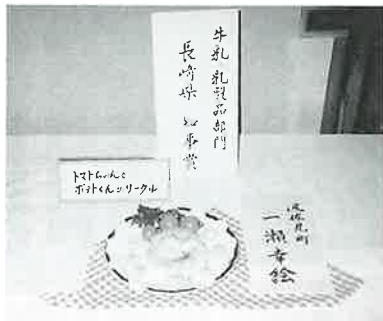 牛乳乳製品部門
長崎県知事賞
トマトちゃんと
ポテトくんのサークル
波佐見町
一瀬幸絵